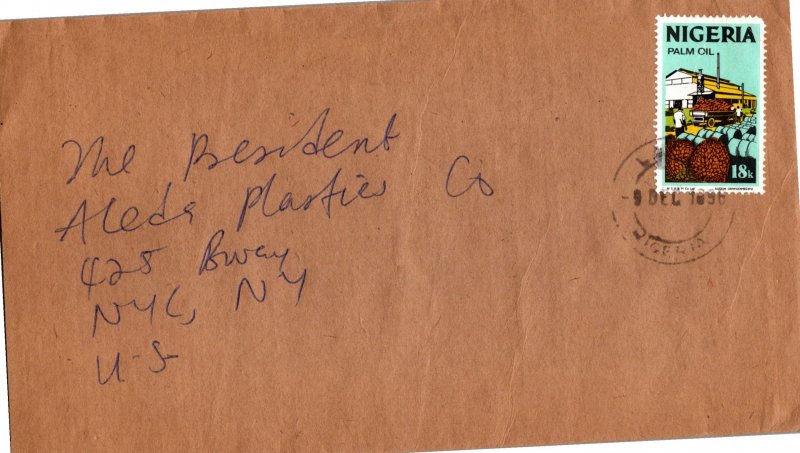 NIGERIA
PALM OIL
18k
-9 DEC 1896
NIGERIA
The President
Aleda Plastics Co
425 Bway
NYC, NY
U-S